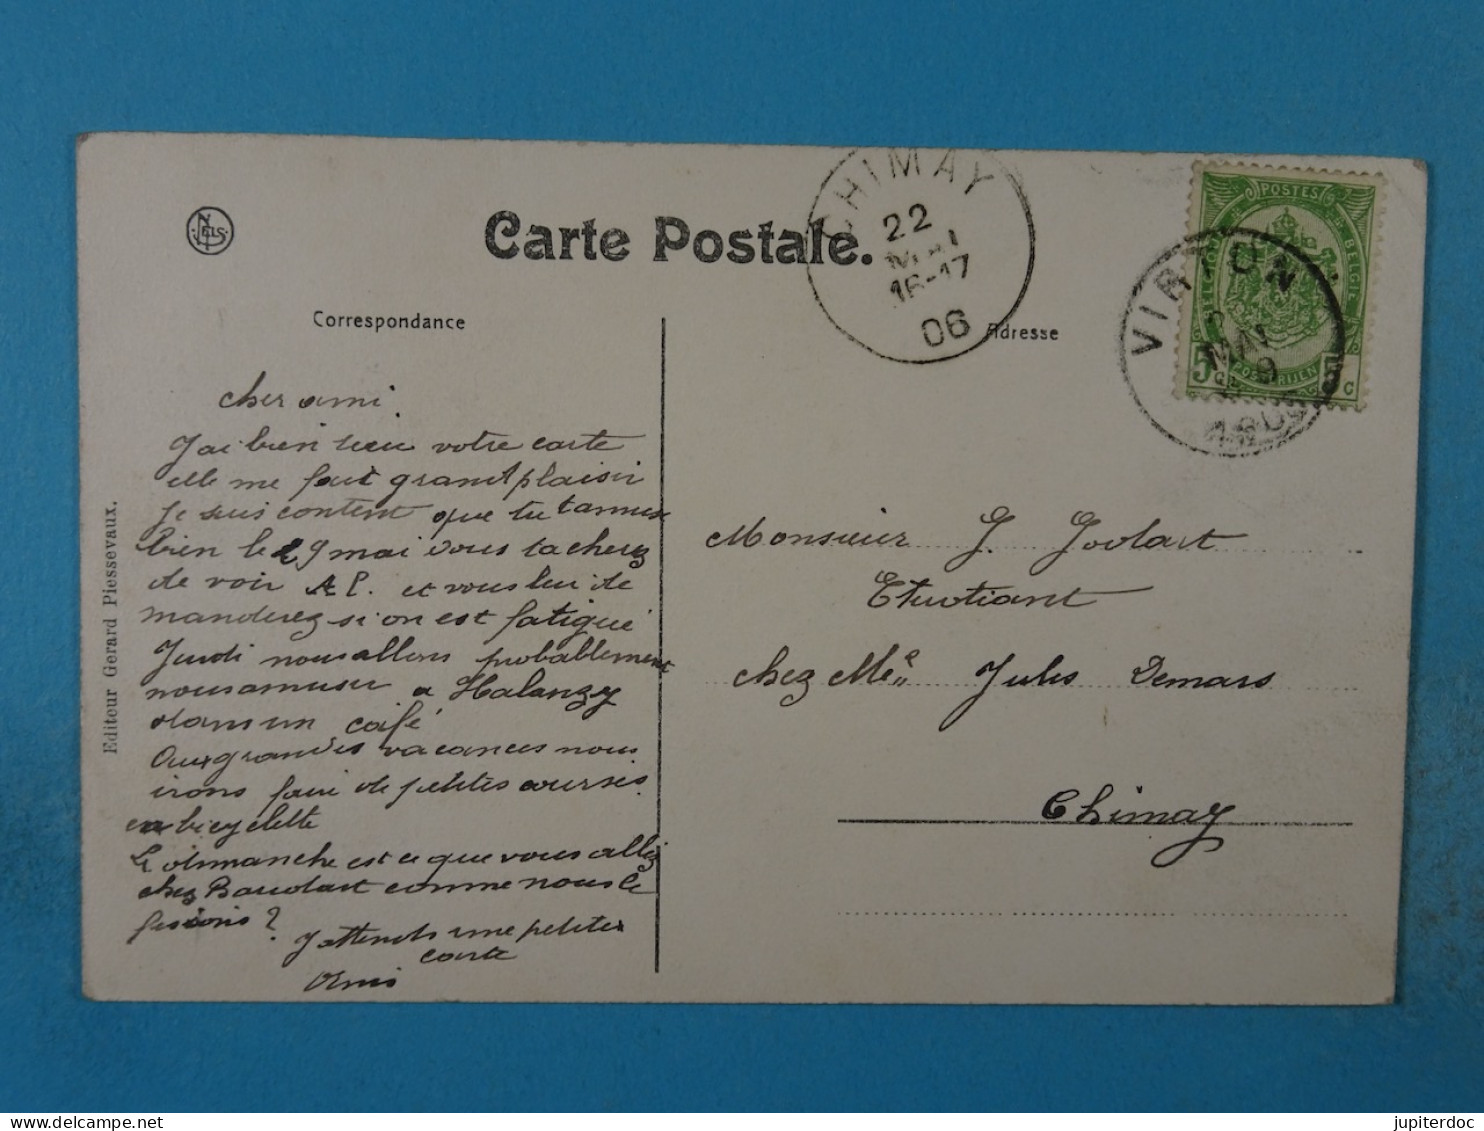 NELS
Carte Postale.
CHIMAY
22
MAI
16-17
06
VIRTON
MAI
9
POSTES
BELGIQUE
BELGIË
POSTERIJEN
5 c
c
Correspondance
Adresse
Editeur Gerard Piessevaux.
cher ami.
J'ai bien recu votre carte
elle me fait grand plaisir
Je suis content que tu t'amuse
bien le 29 mai vous tacherez
de voir A P. et vous lui de
manderez si on est fatigué
Jeudi nous allons probablement
nous amuser a Halanzy
dans un café
Aux grandes vacances nous
irons faire de petites courses
en bicyclette
Le dimanche est ce que vous allez
chez comme nous le
fesions ?
J'attends une petite
carte
Monsieur J. Goolart
Etudiant
chez Me Jules Demars
Chimay
jupiterdoc